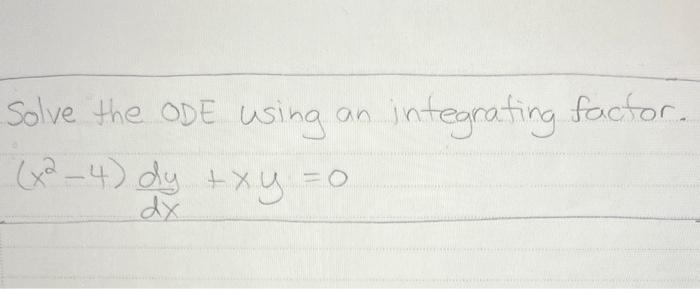 Solve the ODE using an integrating factor.
(x² - 4) dy/dx + xy = 0